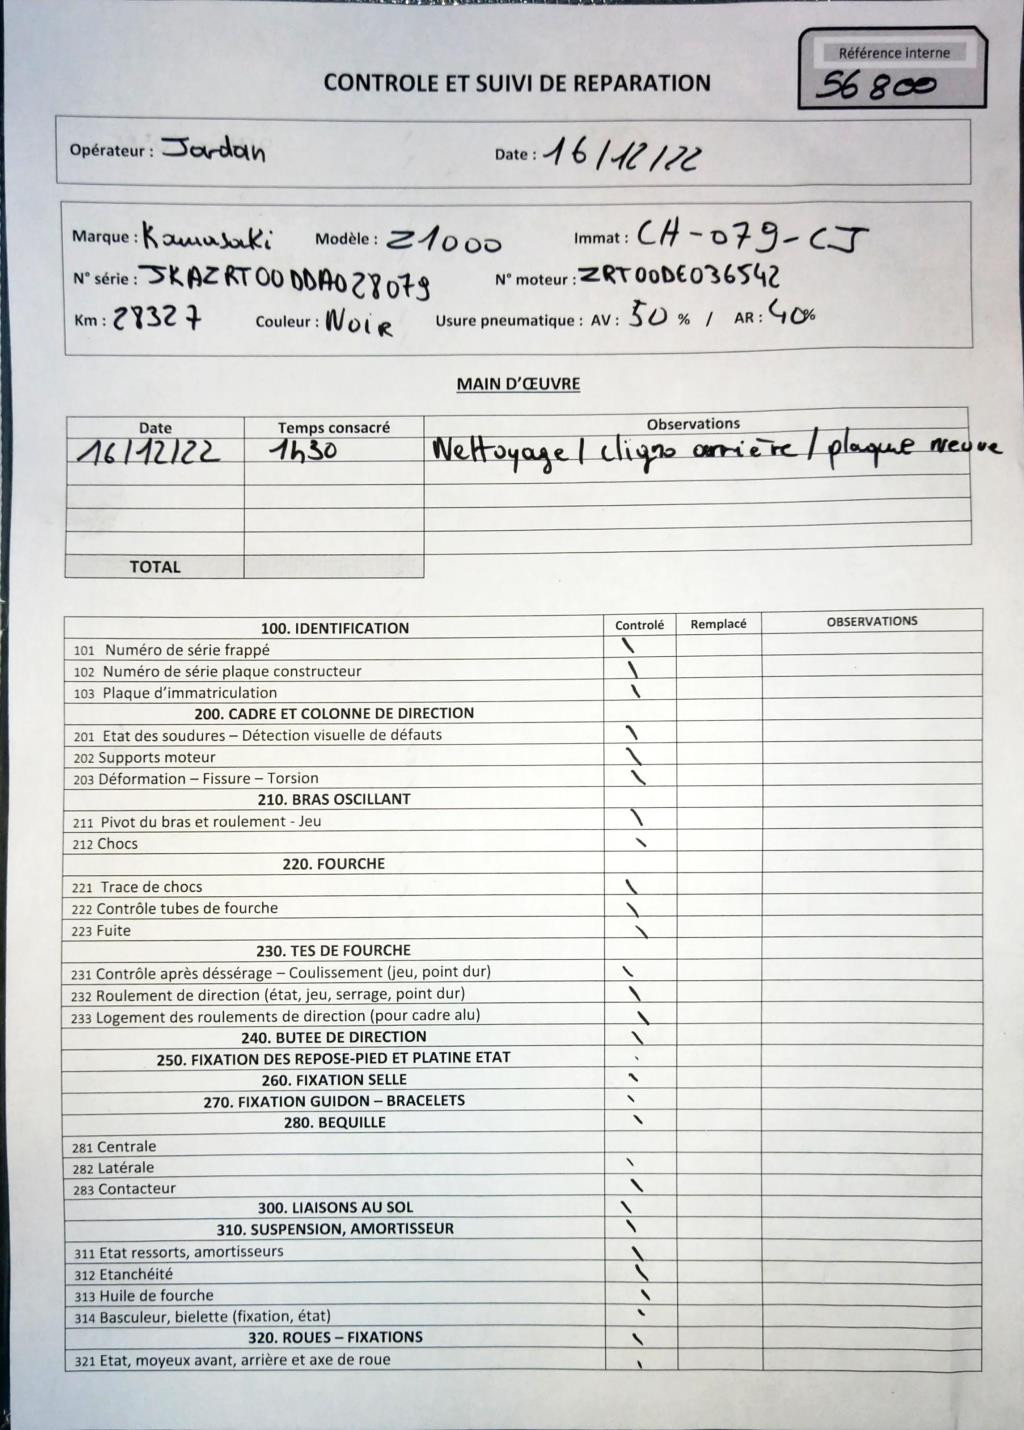 Référence interne
56800
CONTROLE ET SUIVI DE REPARATION
Opérateur : Jordan Date : 16/12/22
Marque : Kawasaki Modèle : Z1000 Immat : CH-079-CJ
N° série : JKAZRT00DDA028079 N° moteur : ZRT00DE036542
Km : 28327 Couleur : Noir Usure pneumatique : AV : 50 % / AR : 40%
MAIN D'ŒUVRE
Date Temps consacré Observations
16/12/22 1h30 Nettoyage / cligno arrière / plaque neuve
TOTAL
100. IDENTIFICATION Controlé Remplacé OBSERVATIONS
101 Numéro de série frappé \
102 Numéro de série plaque constructeur \
103 Plaque d'immatriculation \
200. CADRE ET COLONNE DE DIRECTION
201 Etat des soudures – Détection visuelle de défauts \
202 Supports moteur \
203 Déformation – Fissure – Torsion \
210. BRAS OSCILLANT
211 Pivot du bras et roulement - Jeu \
212 Chocs \
220. FOURCHE
221 Trace de chocs \
222 Contrôle tubes de fourche \
223 Fuite \
230. TES DE FOURCHE
231 Contrôle après déssérage – Coulissement (jeu, point dur) \
232 Roulement de direction (état, jeu, serrage, point dur) \
233 Logement des roulements de direction (pour cadre alu) \
240. BUTEE DE DIRECTION \
250. FIXATION DES REPOSE-PIED ET PLATINE ETAT \
260. FIXATION SELLE \
270. FIXATION GUIDON – BRACELETS \
280. BEQUILLE \
281 Centrale
282 Latérale \
283 Contacteur \
300. LIAISONS AU SOL \
310. SUSPENSION, AMORTISSEUR \
311 Etat ressorts, amortisseurs \
312 Etanchéité \
313 Huile de fourche \
314 Basculeur, bielette (fixation, état) \
320. ROUES – FIXATIONS \
321 Etat, moyeux avant, arrière et axe de roue \